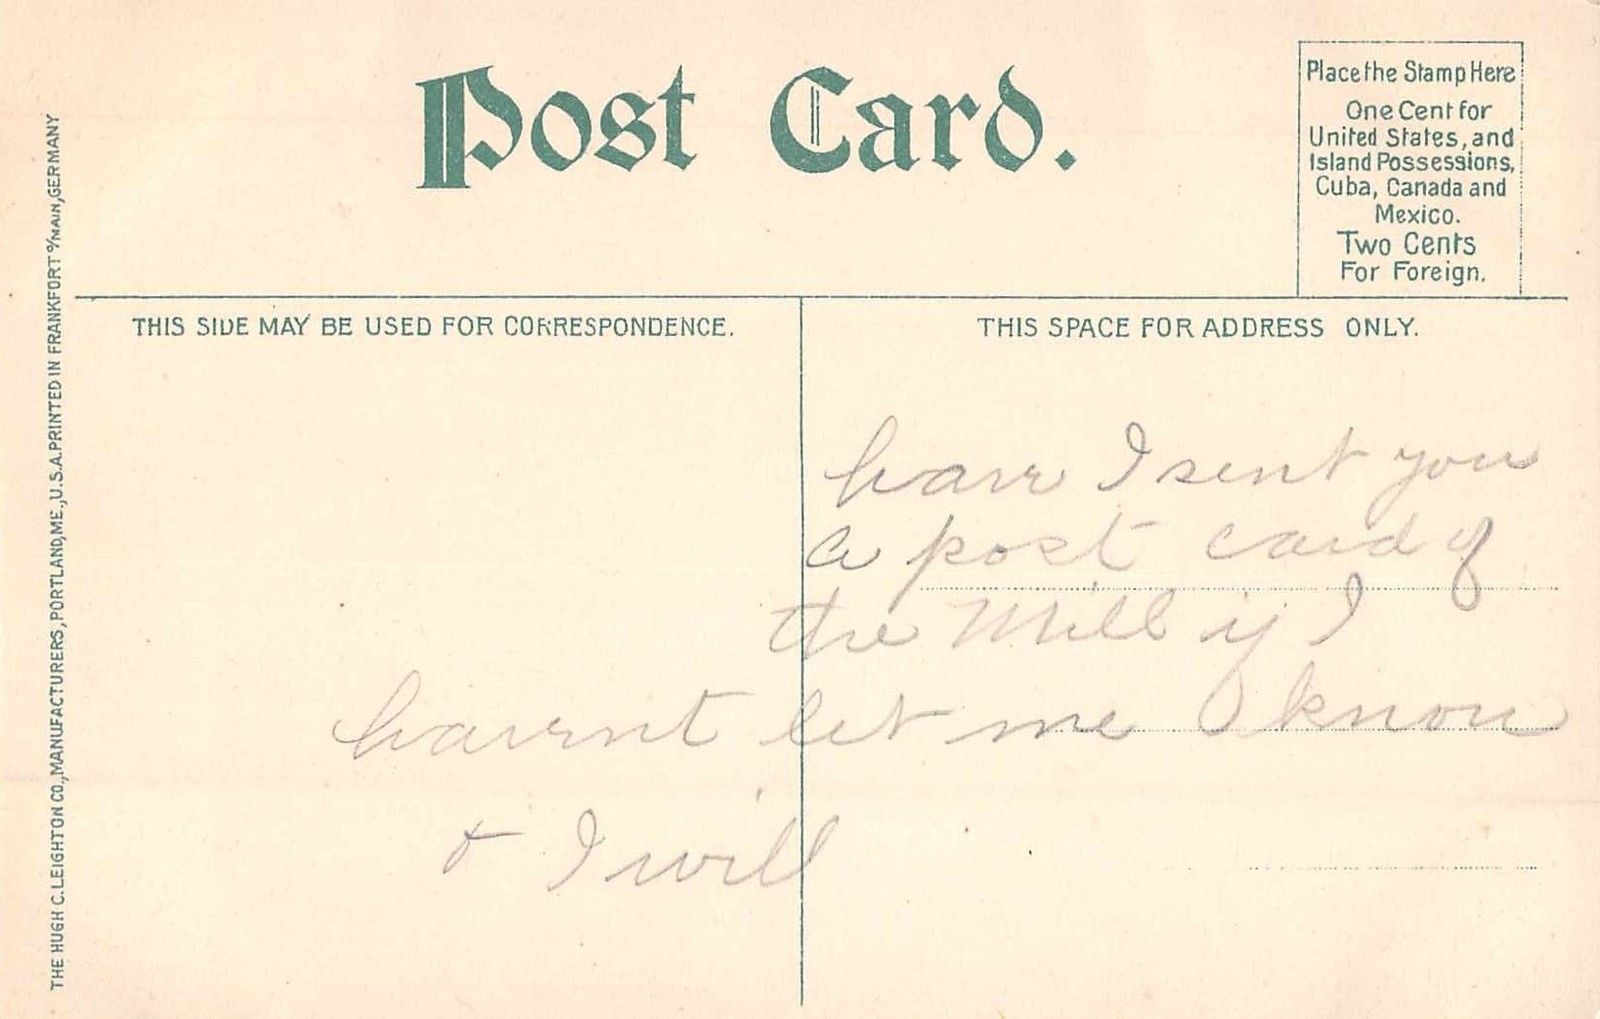 Post Card.
Place the Stamp Here
One Cent for
United States, and
Island Possessions,
Cuba, Canada and
Mexico.
Two Cents
For Foreign.
THIS SIDE MAY BE USED FOR CORRESPONDENCE.
THIS SPACE FOR ADDRESS ONLY.
have I sent you
a post card of
the Mill if I
havent let me know
& I will
THE HUGH C. LEIGHTON CO., MANUFACTURERS, PORTLAND, ME., U.S.A. PRINTED IN FRANKFORT o/MAIN, GERMANY